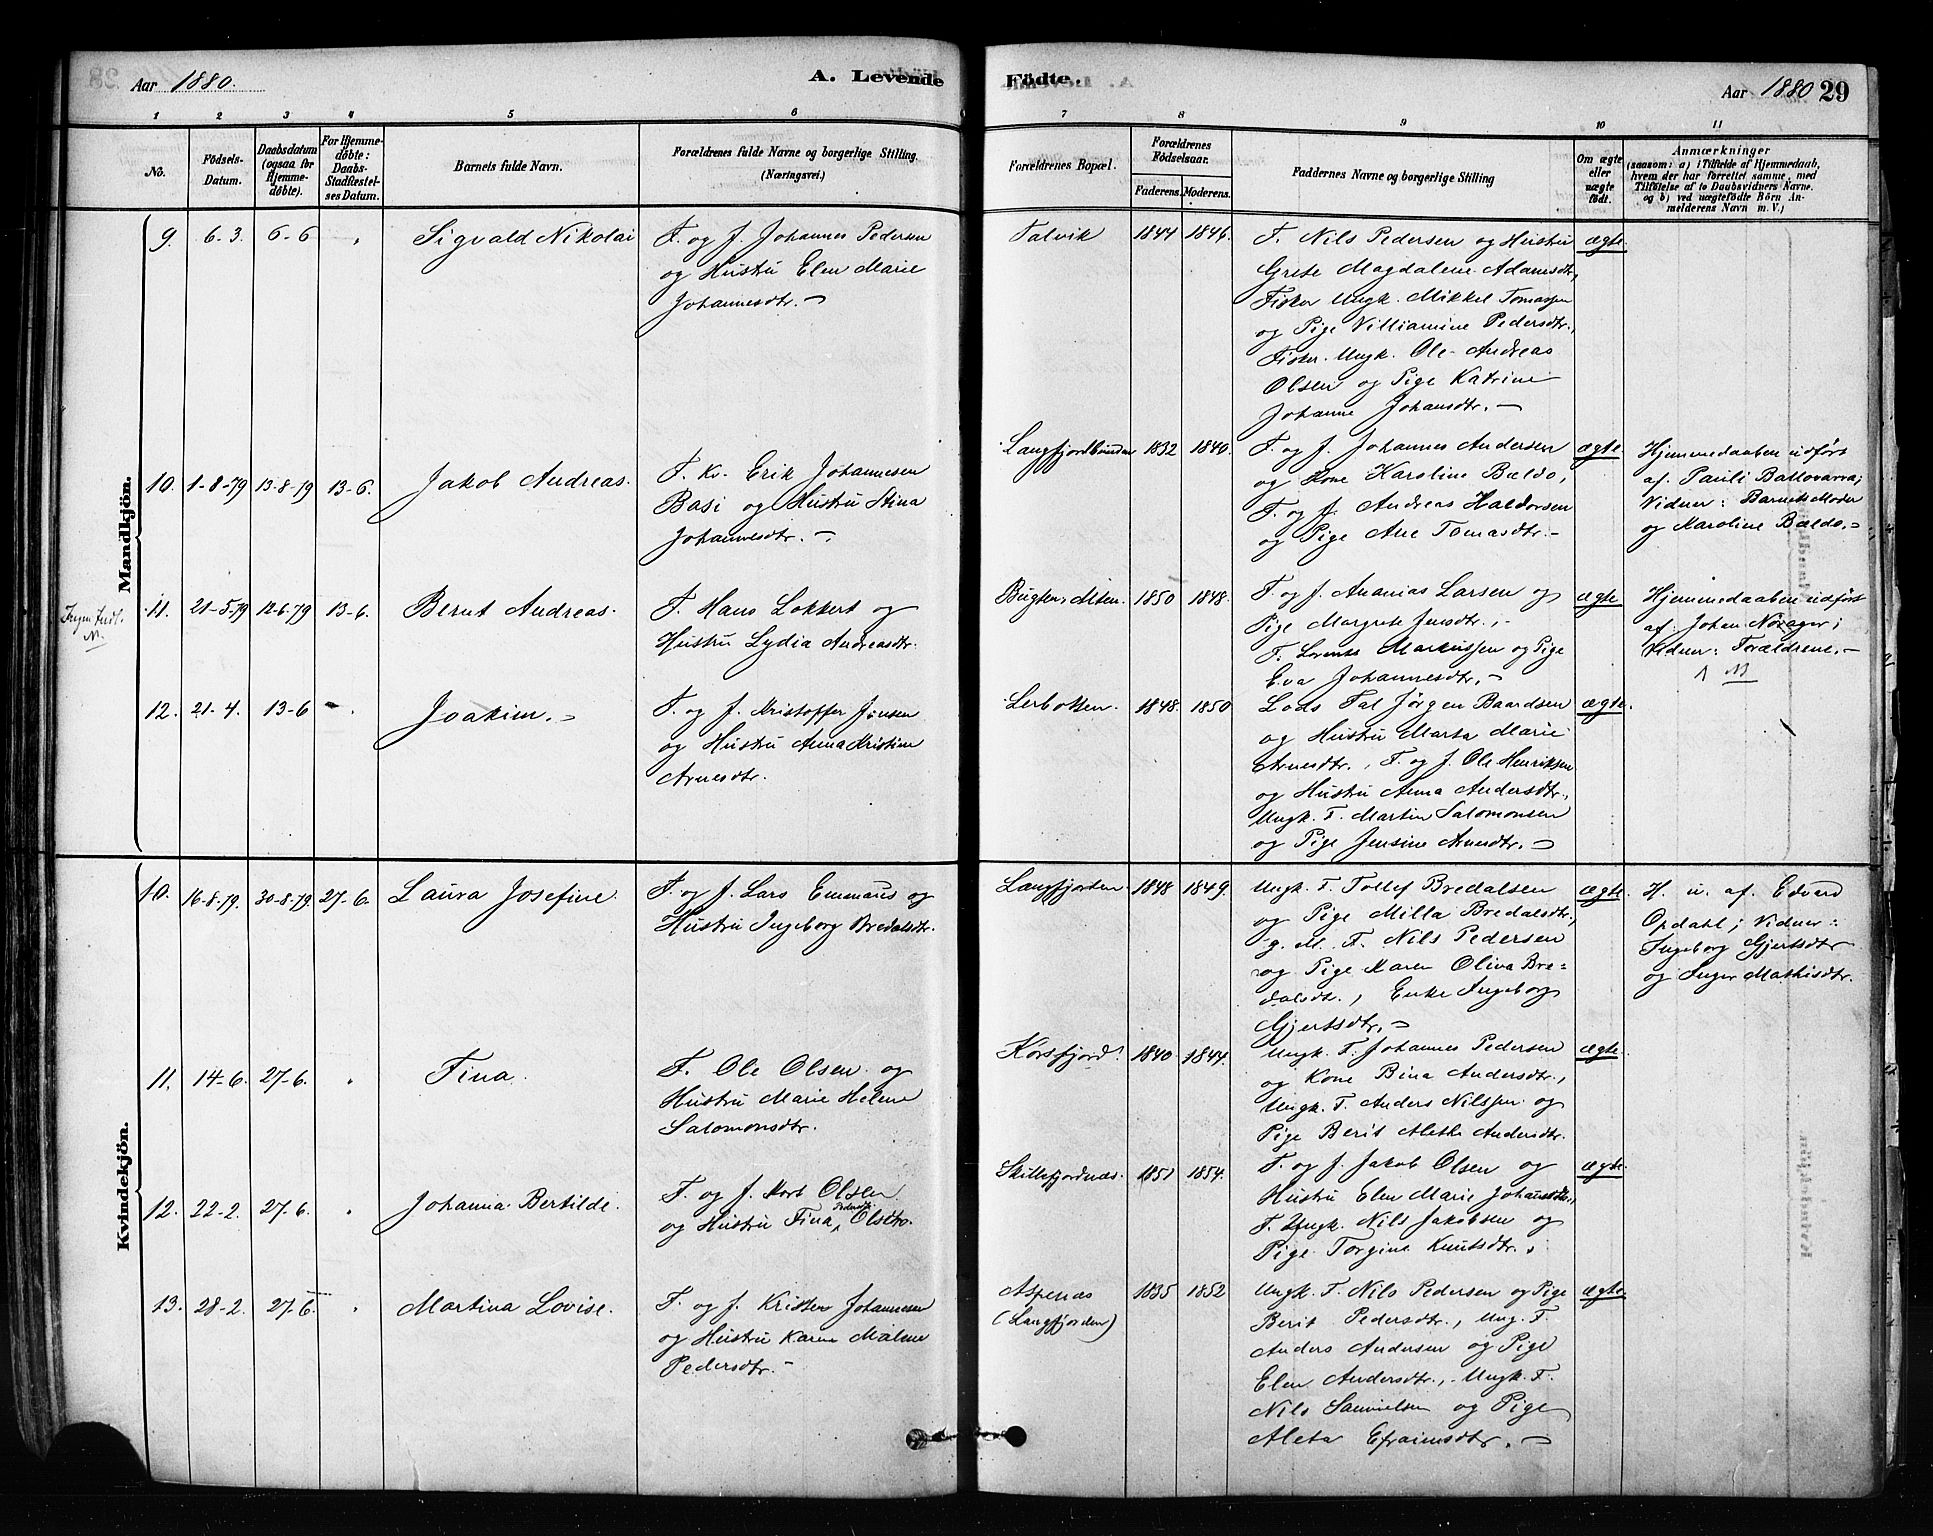 Aar 1880.
A. Levende
Födte.
Aar 1880
29
1 2 3 4 5 6 7 8 9 10 11
No.
Födsels-
Datum.
Daabsdatum
(ogsaa for
Hjemme-
döbte).
For Hjemme-
döbte:
Daabs-
Stadfæstel-
ses Datum.
Barnets fulde Navn.
Forældrenes fulde Navne og borgerlige Stilling.
(Næringsvei.)
Forældrenes Bopæl.
Forældrenes
Födselsaar.
Faderens. Moderens.
Faddernes Navne og borgerlige Stilling
Om ægte
eller
uægte
födt.
Anmærkninger
(saasom: a) i Tilfælde af Hjemmedaab,
hvem der har forrettet samme, med
Tilföielse af to Daabsvidners Navne.
og b) ved uægtefödte Börn An-
melderens Navn m. V.)
Mandkjön.
9. 6-3. 6-6 "
Sigvald Nikolai
F. og J. Johannes Pedersen
og Hustru Elen Marie
Johannesdtr. -
Talvik 1844 1846.
F. Nils Pedersen og Hustru
Grete Magdalene Adamsdtr,
Fisker Ungk. Mikkel Tomassen
og Pige Villiamine Pedersdtr.,
Fisker. Ungk. Ole Andreas
Olsen og Pige Katrine
Johanne Johansdtr. -
ægte.
10. 1-8-79 13-8-79 13-6.
Jakob Andreas.
F. Kv. Erik Johannesen
Basi og Hustru Stina
Johannesdtr. -
Langfjordbunden 1832 1840.
F. og J. Johannes Andersen
og Kone Karoline Baldo,
F. og J. Andreas Haldorsen
og Pige Ane Tomasdtr. -
ægte.
Hjemmedaaben udført
af Pauli Ballovarra;
Vidner: Barnets Moder
og Karoline Baldo. -
11. 21-5-79 12-6-79 13-6.
Bernt Andreas.
F. Hans Lokkert og
Hustru Lydia Andreasdtr.
Bugten, Alten. 1850 1848.
F. og J. Ananias Larsen og
Pige Margrete Jensdtr.,
F. Lorents Markussen og Pige
Eva Johannesdtr. -
ægte
Hjemmedaaben udført
af Johan Nörager;
Vidner: Forældrene. -
12. 21-4. 13-6 "
Joakim. -
F. og J. Kristoffer Jönsen
og Hustru Anna Kristine
Arnesdtr.
Lerbotten. 1848. 1850
Lods Tal Jörgen Baardsen
og Hustru Marta Marie
Arnesdtr., F. og J. Ole Henriksen
og Hustru Anna Andersdtr.,
Ungk. F. Martin Salomonsen
og Pige Jensine Arnesdtr. -
ægte.
Kvindekjön.
10. 16-8-79. 30-8-79. 27-6.
Laura Josefine.
F. og J. Lars Emmaus og
Hustru Ingeborg Bredalsdtr.
Langfjorden 1848 1849.
Ungk. F. Tollef Bredalsen
og Pige Milla Bredalsdtr.,
g. M. F. Nils Pedersen
og Pige Karen Oliva Bre-
dalsdtr., Enke Ingeborg
Gjertsdtr. -
ægte.
H. u. af Edvard
Opdahl; Vidner:
Ingeborg Gjertsdtr
og Inger Mathisdtr.
11. 14-6. 27-6. "
Tina.
F. Ole Olsen og
Hustru Marie Helene
Salomonsdtr.
Korsfjord. 1840. 1844.
Ungk. F. Johannes Pedersen
og Kone Bina Andersdtr.,
Ungk. F. Anders Nilssen og
Pige Berit Alethe Andersdtr.
ægte.
12. 22-2. 27-6. "
Johanna Bertilde.
F. og J. Kort Olsen
og Hustru Tina Olsdtr.
Skillefjordnæs. 1851 1854.
F. og J. Jakob Olsen og
Hustru Elen Marie Johansdtr.,
F. Ungk. Nils Jakobsen og
Pige Torgine Knutsdtr.
ægte.
13. 28-2. 27-6. "
Martina Lovise.
F. og J. Kristen Johannesen
og Hustru Karen Malene
Pedersdtr. -
Aspenæs
(Langfjorden)
1835 1852
Ungk. F. Nils Pedersen og Pige
Berit Pedersdtr., Ung. F.
Anders Andersen og Pige
Elen Andersdtr., Ungk. F.
Nils Samuelsen og Pige
Aleta Efraimsdtr. -
ægte.